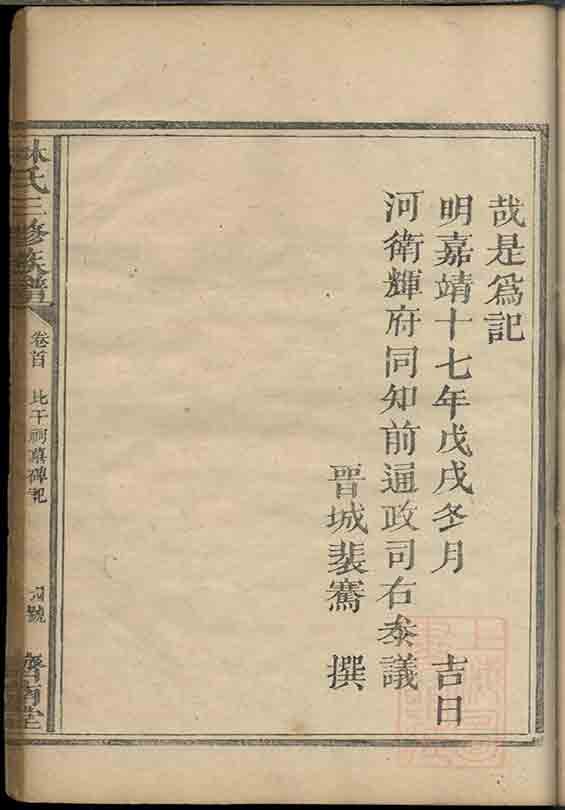 哉是爲記
明嘉靖十七年戊戌冬月　吉日
河衛輝府同知前通政司右叅議
晋城裴騫　撰
林氏三修族譜
卷首　比干祠墓碑記
號
濟南堂